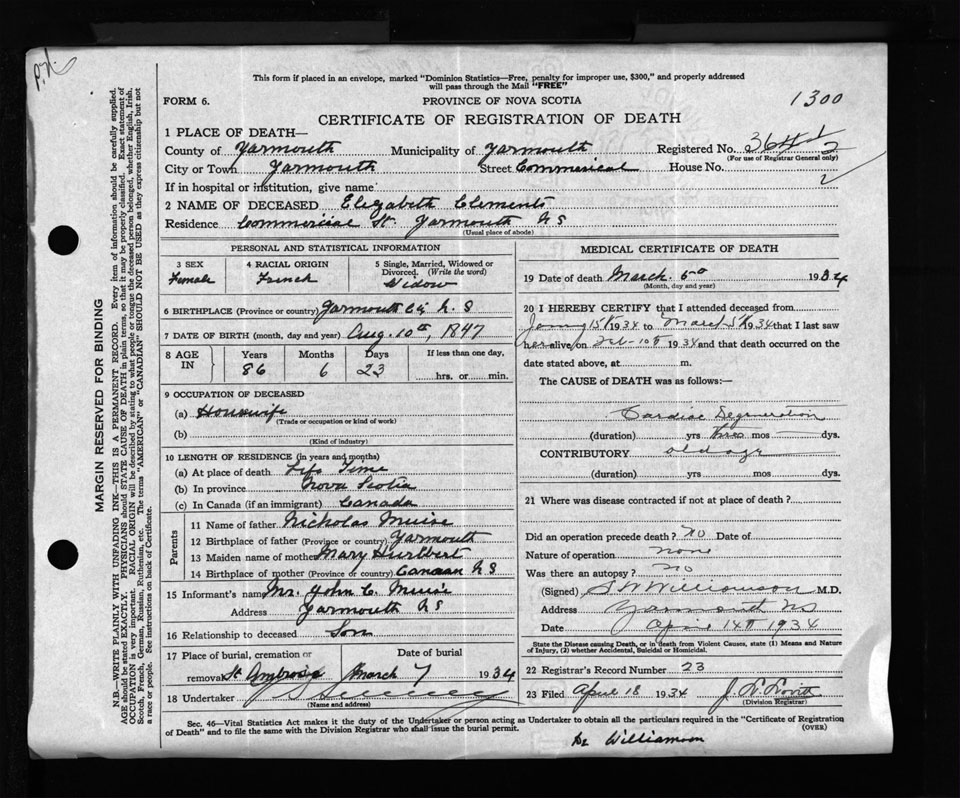 This form if placed in an envelope, marked "Dominion Statistics—Free, penalty for improper use, $300," and properly addressed
will pass through the Mail "FREE"
FORM 6.
PROVINCE OF NOVA SCOTIA
1300
CERTIFICATE OF REGISTRATION OF DEATH
1 PLACE OF DEATH—
County of Yarmouth Municipality of Yarmouth Registered No.
(For use of Registrar General only)
City or Town Yarmouth Street Commerical House No.
2
If in hospital or institution, give name
2 NAME OF DECEASED Elizabeth Clements
Residence Commercial St. Yarmouth N S
(Usual place of abode)
PERSONAL AND STATISTICAL INFORMATION
3 SEX
Female
4 RACIAL ORIGIN
French
5 Single, Married, Widowed or
Divorced. (Write the word)
Widow
6 BIRTHPLACE (Province or country) Yarmouth Co, N. S
7 DATE OF BIRTH (month, day and year) Aug. 10th, 1847
8 AGE IN
Years
86
Months
6
Days
23
If less than one day,
hrs. or min.
9 OCCUPATION OF DECEASED
(a) Housewife
(Trade or occupation or kind of work)
(b)
(Kind of industry)
10 LENGTH OF RESIDENCE (in years and months)
(a) At place of death Life Time
(b) In province Nova Scotia
(c) In Canada (if an immigrant) Canada
Parents
11 Name of father Nicholas Muise
12 Birthplace of father (Province or country) Yarmouth
13 Maiden name of mother Mary Hurlbert
14 Birthplace of mother (Province or country) Canaan N S
15 Informant's name Mr. John C. Muise
Address Yarmouth N S
16 Relationship to deceased Son
17 Place of burial, cremation or
removal St Ambrose
Date of burial
March 7 1934
18 Undertaker
(Name and address)
MEDICAL CERTIFICATE OF DEATH
19 Date of death March 5th 1934
(Month, day and year)
20 I HEREBY CERTIFY that I attended deceased from
15th 1934 to March 5th 1934 that I last saw
her alive on Feb 10th 1934 and that death occurred on the
date stated above, at m.
The CAUSE of DEATH was as follows:—
Cardiac Degeneration
(duration) yrs three mos — dys.
CONTRIBUTORY old age
(duration) yrs mos dys.
21 Where was disease contracted if not at place of death?
Did an operation precede death? no Date of
Nature of operation none
Was there an autopsy? no
(Signed) S W Williamson M.D.
Address Yarmouth NS
Date April 14th 1934
State the Disease causing Death, or in death from Violent Causes, state (1) Means and Nature
of Injury, (2) whether Accidental, Suicidal or Homicidal.
22 Registrar's Record Number 23
23 Filed April 18 1934 J. L. Lovitt
(Division Registrar)
Sec. 46—Vital Statistics Act makes it the duty of the Undertaker or person acting as Undertaker to obtain all the particulars required in the "Certificate of Registration
of Death" and to file the same with the Division Registrar who shall issue the burial permit.
(OVER)
Dr Williamson
MARGIN RESERVED FOR BINDING
N.B.—WRITE PLAINLY WITH UNFADING INK—THIS IS A PERMANENT RECORD. Every item of information should be carefully supplied.
AGE should be stated EXACTLY. PHYSICIANS should STATE CAUSE OF DEATH in plain terms, so that it may be properly classified. Exact statement of
OCCUPATION is very important. RACIAL ORIGIN will be described by stating to what people or tongue the deceased person belonged, whether English, Irish,
Scotch, French, German, Russian, Ruthenian, etc. The terms "AMERICAN" or "CANADIAN" SHOULD NOT BE USED as they express citizenship but not
a race or people. See instructions on back of Certificate.